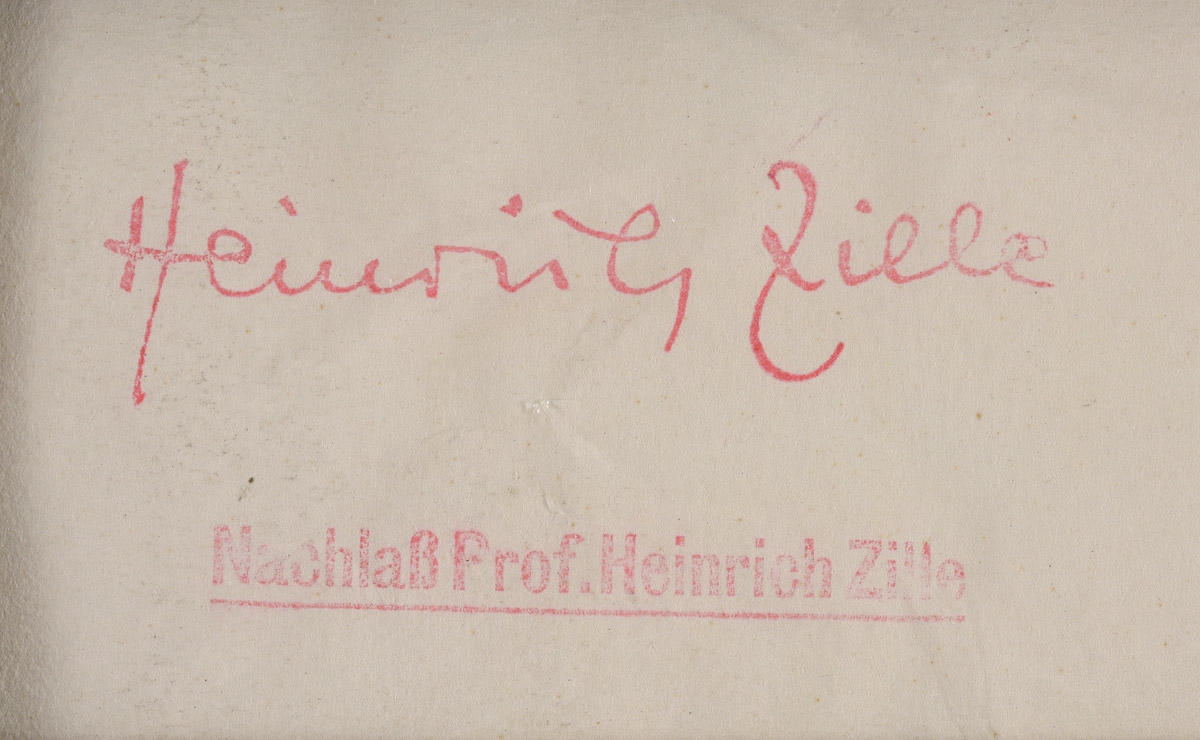 Heinrich Zille
Nachlaß Prof. Heinrich Zille